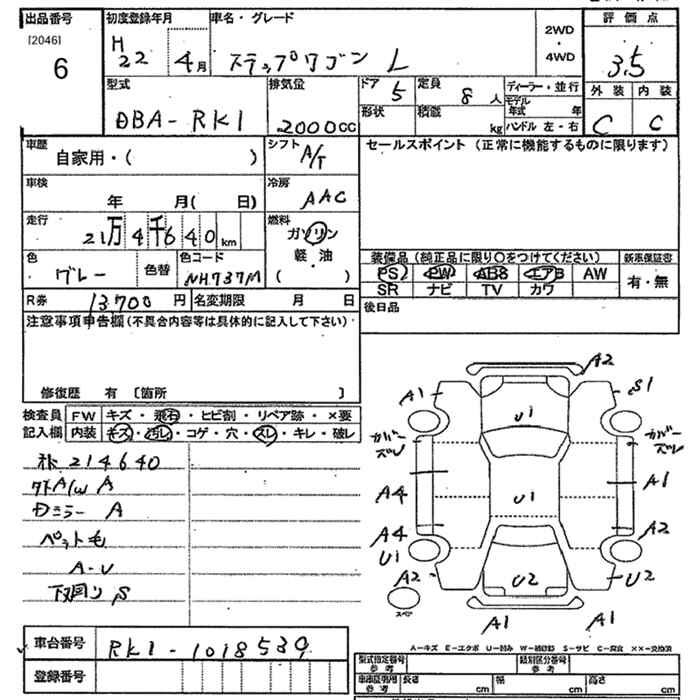 出品番号 初度登録年月 車名・グレード 評価点
[2046] 6 H22 4月 ステップワゴン L 2WD・4WD 3.5
型式 排気量 ドア 5 定員 8人 ディーラー・並行 外装 内装
DBA-RK1 2000cc 形状 積載 kg モデル年式 年 ハンドル 左・右 C C
車歴 自家用・( ) シフト A/T セールスポイント (正常に機能するものに限ります)
車検 年 月( 日) 冷房 AAC
走行 21万4千640km 燃料 ガソリン 軽油 ( )
色 グレー 色替 色コード NH737M
装備品 (純正品に限り〇をつけてください) 新車保証書
PS PW ABS エアB AW 有・無
SR ナビ TV カワ
R券 13,700円 名変期限 月 日 後日品
注意事項申告欄 (不具合内容等は具体的に記入して下さい)
修復歴 有 〔箇所 〕
検査員記入欄 FW キズ・飛石・ヒビ割・リペア跡・×要
内装 キズ・汚レ・コゲ・穴・スレ・キレ・破レ
214640
A/W A
ミラー A
ペット毛
A-U
下廻り S
A2
A1 S1
U1
カバーズレ カバーズレ
A4 U1 A1
A4 A2
U1
A2 U2 U2
スペア
A1 A1
A-キズ E-エクボ U-凹み W-補修跡 S-サビ C-腐食 ××-交換済
車台番号 RK1-1018539
登録番号
型式指定番号 参考 類別区分番号 参考
車庫証明用 参考 長さ cm 幅 cm 高さ cm